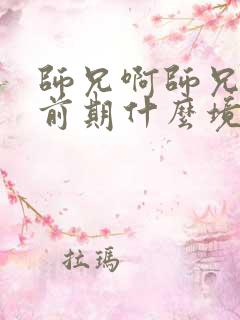 師兄啊師兄
前期什麼境
拉瑪